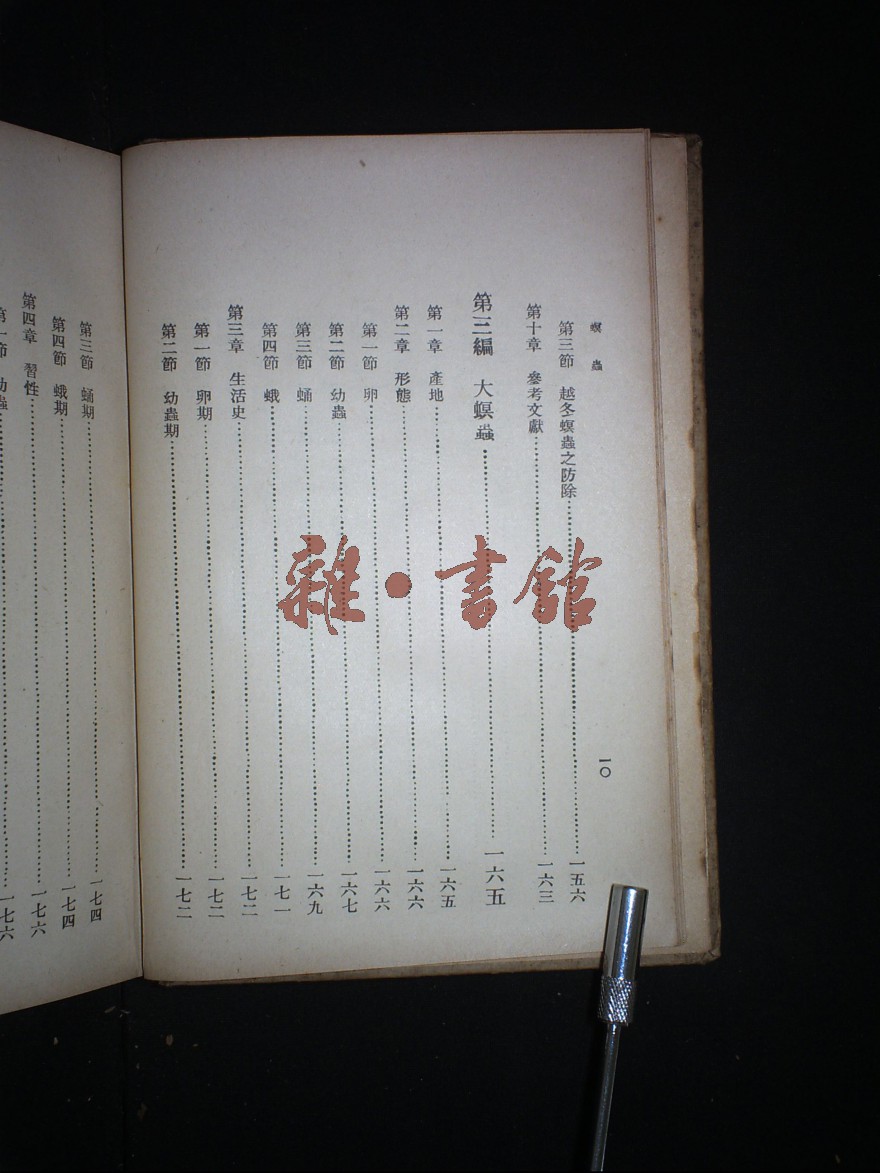 螟蟲
一〇
第三節 越冬螟蟲之防除………一五六
第十章 參考文獻………一六三
第三編 大螟蟲………一六五
第一章 產地………一六五
第二章 形態………一六六
第一節 卵………一六六
第二節 幼蟲………一六七
第三節 蛹………一六九
第四節 蛾………一七一
第三章 生活史………一七二
第一節 卵期………一七二
第二節 幼蟲期………一七二
第三節 蛹期………一七四
第四節 蛾期………一七四
第四章 習性………一七六
第一節 幼蟲………一七六
雜·書館